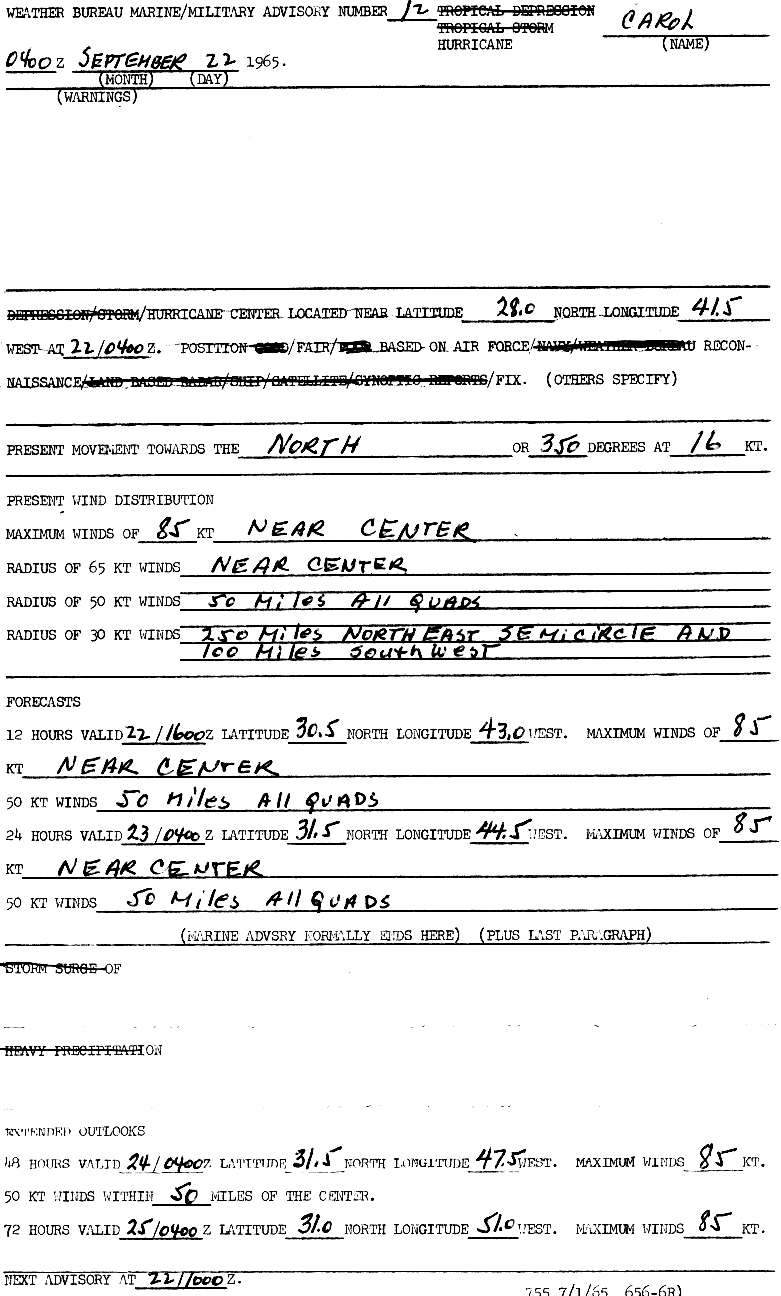 WEATHER BUREAU MARINE/MILITARY ADVISORY NUMBER 12 TROPICAL DEPRESSION
TROPICAL STORM CAROL
HURRICANE (NAME)
0400 Z SEPTEMBER 22 1965.
(MONTH) (DAY)
(WARNINGS)
DEPRESSION/STORM/HURRICANE CENTER LOCATED NEAR LATITUDE 28.0 NORTH LONGITUDE 41.5
WEST AT 22/0400 Z. POSITION GOOD/FAIR/POOR BASED ON AIR FORCE/NAVY/WEATHER BUREAU RECON-
NAISSANCE/LAND BASED RADAR/SHIP/SATELLITE/SYNOPTIC REPORTS/FIX. (OTHERS SPECIFY)
PRESENT MOVEMENT TOWARDS THE NORTH OR 350 DEGREES AT 16 KT.
PRESENT WIND DISTRIBUTION
MAXIMUM WINDS OF 85 KT NEAR CENTER
RADIUS OF 65 KT WINDS NEAR CENTER
RADIUS OF 50 KT WINDS 50 Miles All QUADS
RADIUS OF 30 KT WINDS 250 Miles NORTHEAST SEMiCiRClE AND
100 Miles SouthWest
FORECASTS
12 HOURS VALID 22/1600Z LATITUDE 30.5 NORTH LONGITUDE 43.0 WEST. MAXIMUM WINDS OF 85
KT NEAR CENTER
50 KT WINDS 50 Miles All QUADS
24 HOURS VALID 23/0400 Z LATITUDE 31.5 NORTH LONGITUDE 44.5 WEST. MAXIMUM WINDS OF 85
KT NEAR CENTER
50 KT WINDS 50 Miles All QUADS
(MARINE ADVSRY NORMALLY ENDS HERE) (PLUS LAST PARAGRAPH)
STORM SURGE OF
HEAVY PRECIPITATION
EXTENDED OUTLOOKS
48 HOURS VALID 24/0400Z LATITUDE 31.5 NORTH LONGITUDE 47.5 WEST. MAXIMUM WINDS 85 KT.
50 KT WINDS WITHIN 50 MILES OF THE CENTER.
72 HOURS VALID 25/0400 Z LATITUDE 31.0 NORTH LONGITUDE 51.0 WEST. MAXIMUM WINDS 85 KT.
NEXT ADVISORY AT 22/1000 Z.
755 7/1/65 656-6R)